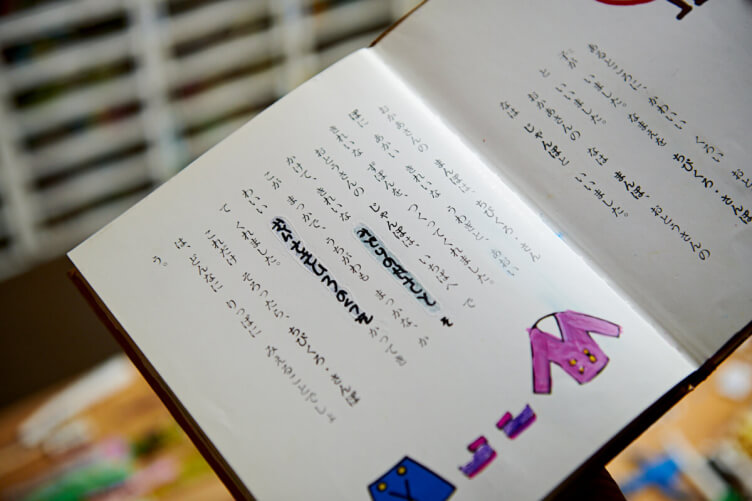 あるところに、かわいい　くろい　おと
が　いました。なまえを　ちびくろ・さんぼ
と　いいました。
おかあさんの　なは　まんぼ、おとうさんの
なは　じゃんぼと　いいました。
おかあさんの　まんぼは、ちびくろ・さん
ぼに　あかい　きれいな　うわぎと、あおい
きれいな　ずぼんを、つくってくれました。
おとうさんの　じゃんぼは、いちばへ　で
かけて、きれいな　みどりの
こが　まっかで、うちがわも　まっかな、か
わいい　かってき
て　くれました。
これだけ　そろったら、ちびくろ・さんぼ
は、どんなに　りっぱに　みえることでしょ
う。